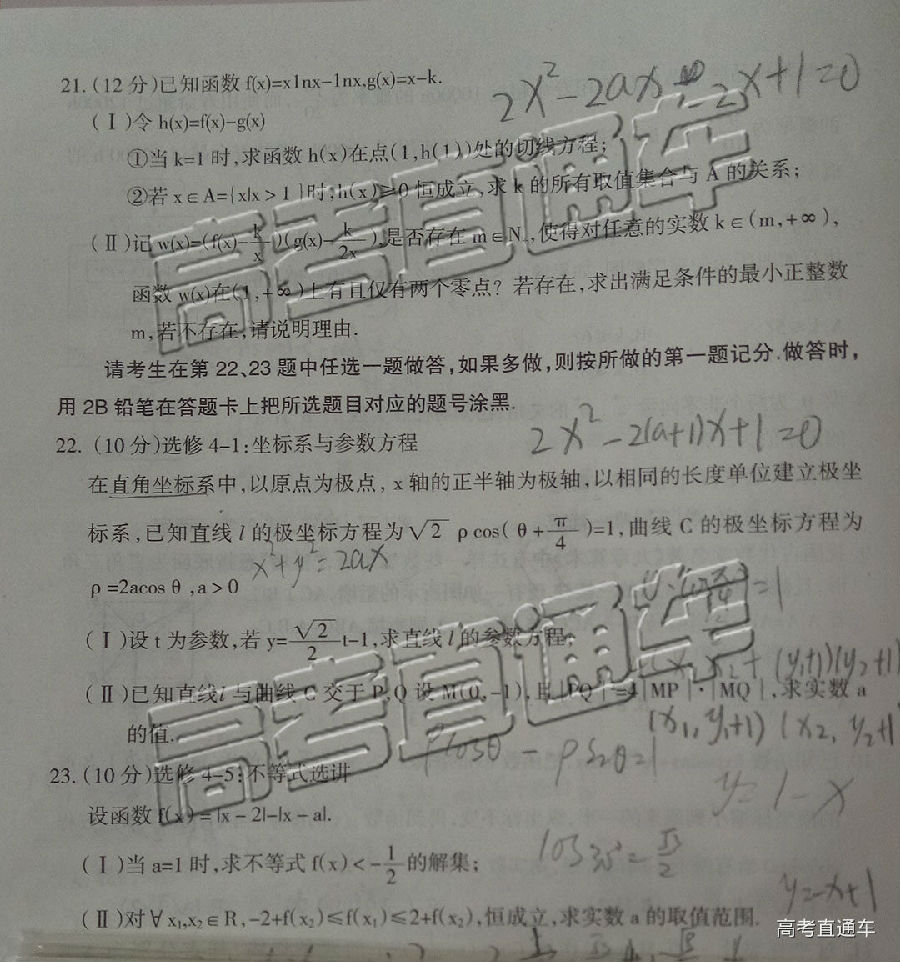 21.(12分)已知函数 f(x)=xlnx-lnx,g(x)=x-k.
2x²-2ax-2x+1=0
(Ⅰ)令 h(x)=f(x)-g(x)
①当 k=1 时,求函数 h(x)在点(1,h(1))处的切线方程;
②若 x∈A={x|x>1}时,h(x)≥0 恒成立,求 k 的所有取值集合与 A 的关系;
(Ⅱ)记 w(x)=(f(x)-k/x)(g(x)-k/2x),是否存在 m∈N+,使得对任意的实数 k∈(m,+∞),
函数 w(x)在(1,+∞)上有且仅有两个零点?若存在,求出满足条件的最小正整数
m,若不存在,请说明理由.
请考生在第 22、23 题中任选一题做答,如果多做,则按所做的第一题记分.做答时,
用 2B 铅笔在答题卡上把所选题目对应的题号涂黑.
2x²-2(a+1)x+1=0
22.(10分)选修 4-1:坐标系与参数方程
在直角坐标系中,以原点为极点, x 轴的正半轴为极轴,以相同的长度单位建立极坐
标系,已知直线 l 的极坐标方程为√2 ρcos(θ+π/4)=1,曲线 C 的极坐标方程为
x²+y²=2ax
ρ=2acosθ,a>0
(Ⅰ)设 t 为参数,若 y=√2/2 t-1,求直线 l 的参数方程;
x₂+(y₁+1)(y₂+1)
(Ⅱ)已知直线 l 与曲线 C 交于 P,Q 设 M(0,-1),且|PQ|²=4|MP|·|MQ|,求实数 a
的值.
(x₁,y₁+1) (x₂,y₂+1
y=1-x
23.(10分)选修 4-5:不等式选讲
设函数 f(x)=|x-2|-|x-a|.
(Ⅰ)当 a=1 时,求不等式 f(x)<-1/2 的解集;
y=-x+1
(Ⅱ)对∀x₁,x₂∈R,-2+f(x₂)≤f(x₁)≤2+f(x₂),恒成立,求实数 a 的取值范围.
高考直通车
高考直通车
高考直通车